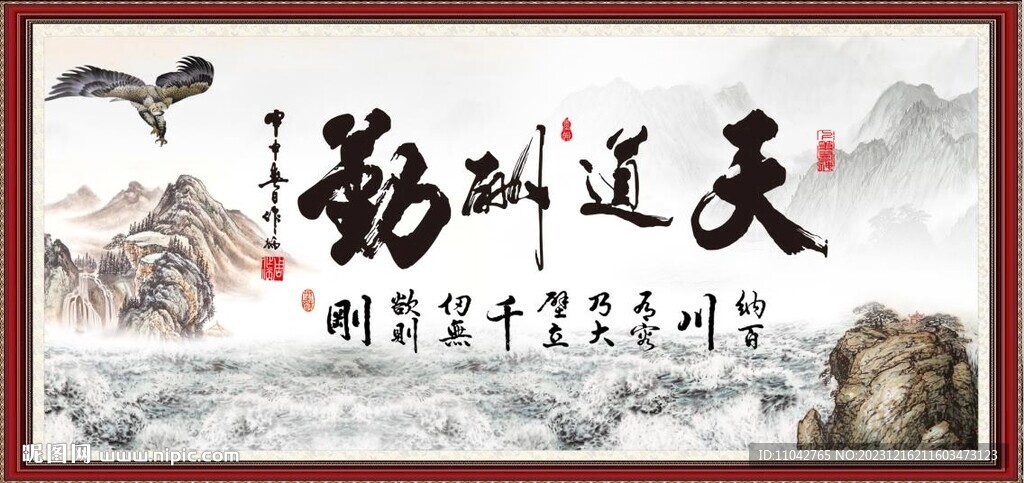 天道酬勤
纳百川有容乃大壁立千仞無欲則剛
昵图网 www.nipic.com
ID:11042765 NO:20231216211603473123